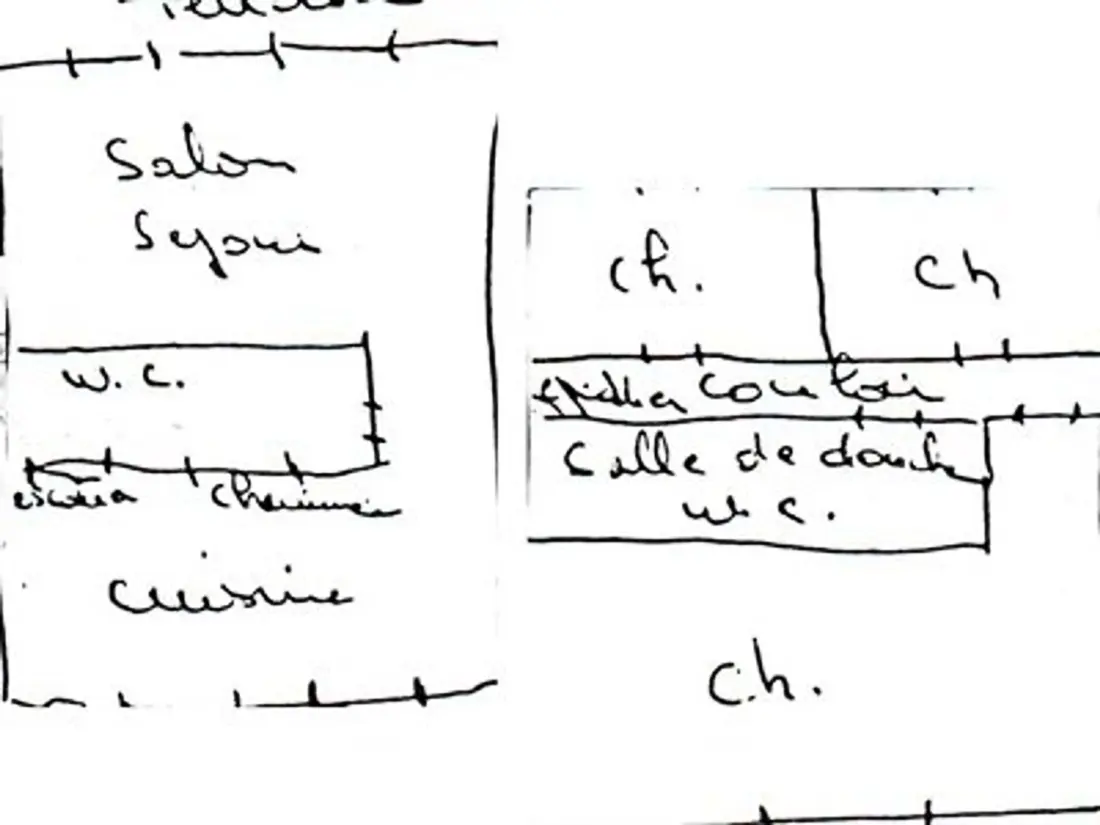 Salon
Sejour
W.C.
escalier
Cheminée
Cuisine
Ch.
Ch
Couloir
Salle de douche
W.C.
Ch.